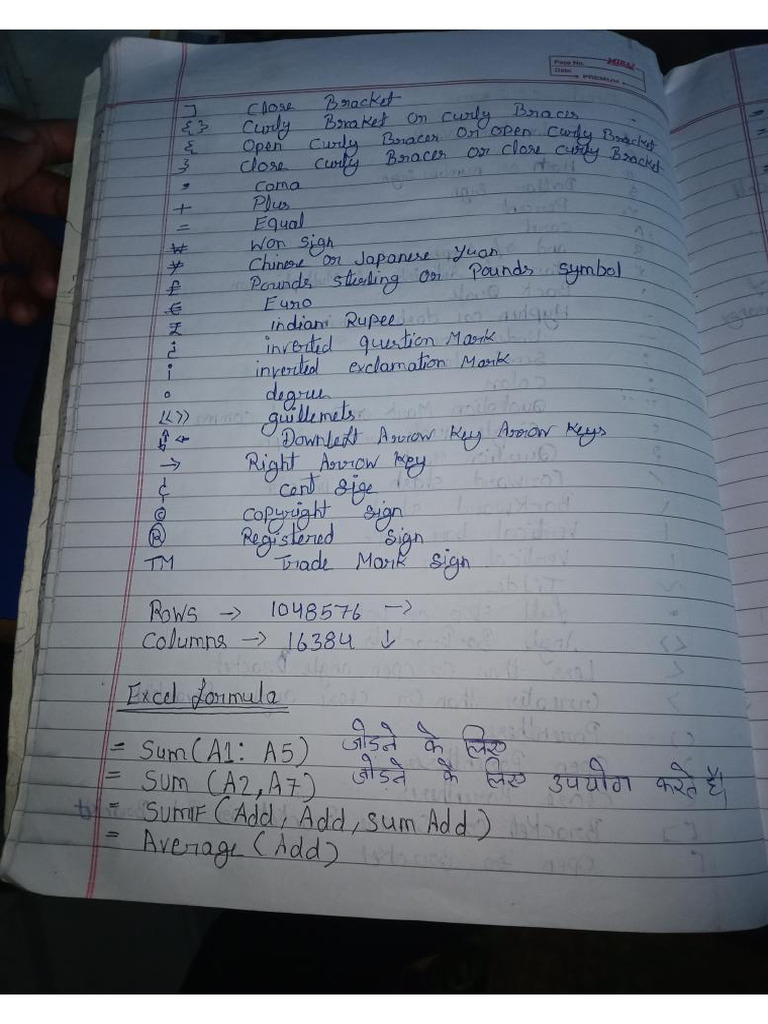 Page No. MIRAJ
Date
PREMIUM
] Close Bracket
{ } Curly Braket or Curly Bracer
{ Open Curly Bracer or open Curly Bracket
} Close Curly Bracer or Close Curly Bracket
, Coma
+ Plus
= Equal
₩ Won Sign
¥ Chinese or Japanese Yuan
£ Pounds sterling or Pounds symbol
€ Euro
₹ indian Rupee
¿ inverted question Mark
¡ inverted exclamation Mark
° degree
«» guillemets
Downleft Arrow Key Arrow Keys
→ Right Arrow Key
¢ Cent Sige
© Copyright Sign
® Registered Sign
TM Trade Mark Sign
Rows → 1048576 →
Columns → 16384 ↓
Excel formula
= Sum(A1: A5) जोडने के लिए
= Sum (A2,A7) जोडने के लिए उपयोग करते है।
= SumIF (Add, Add, Sum Add)
= Average (Add)